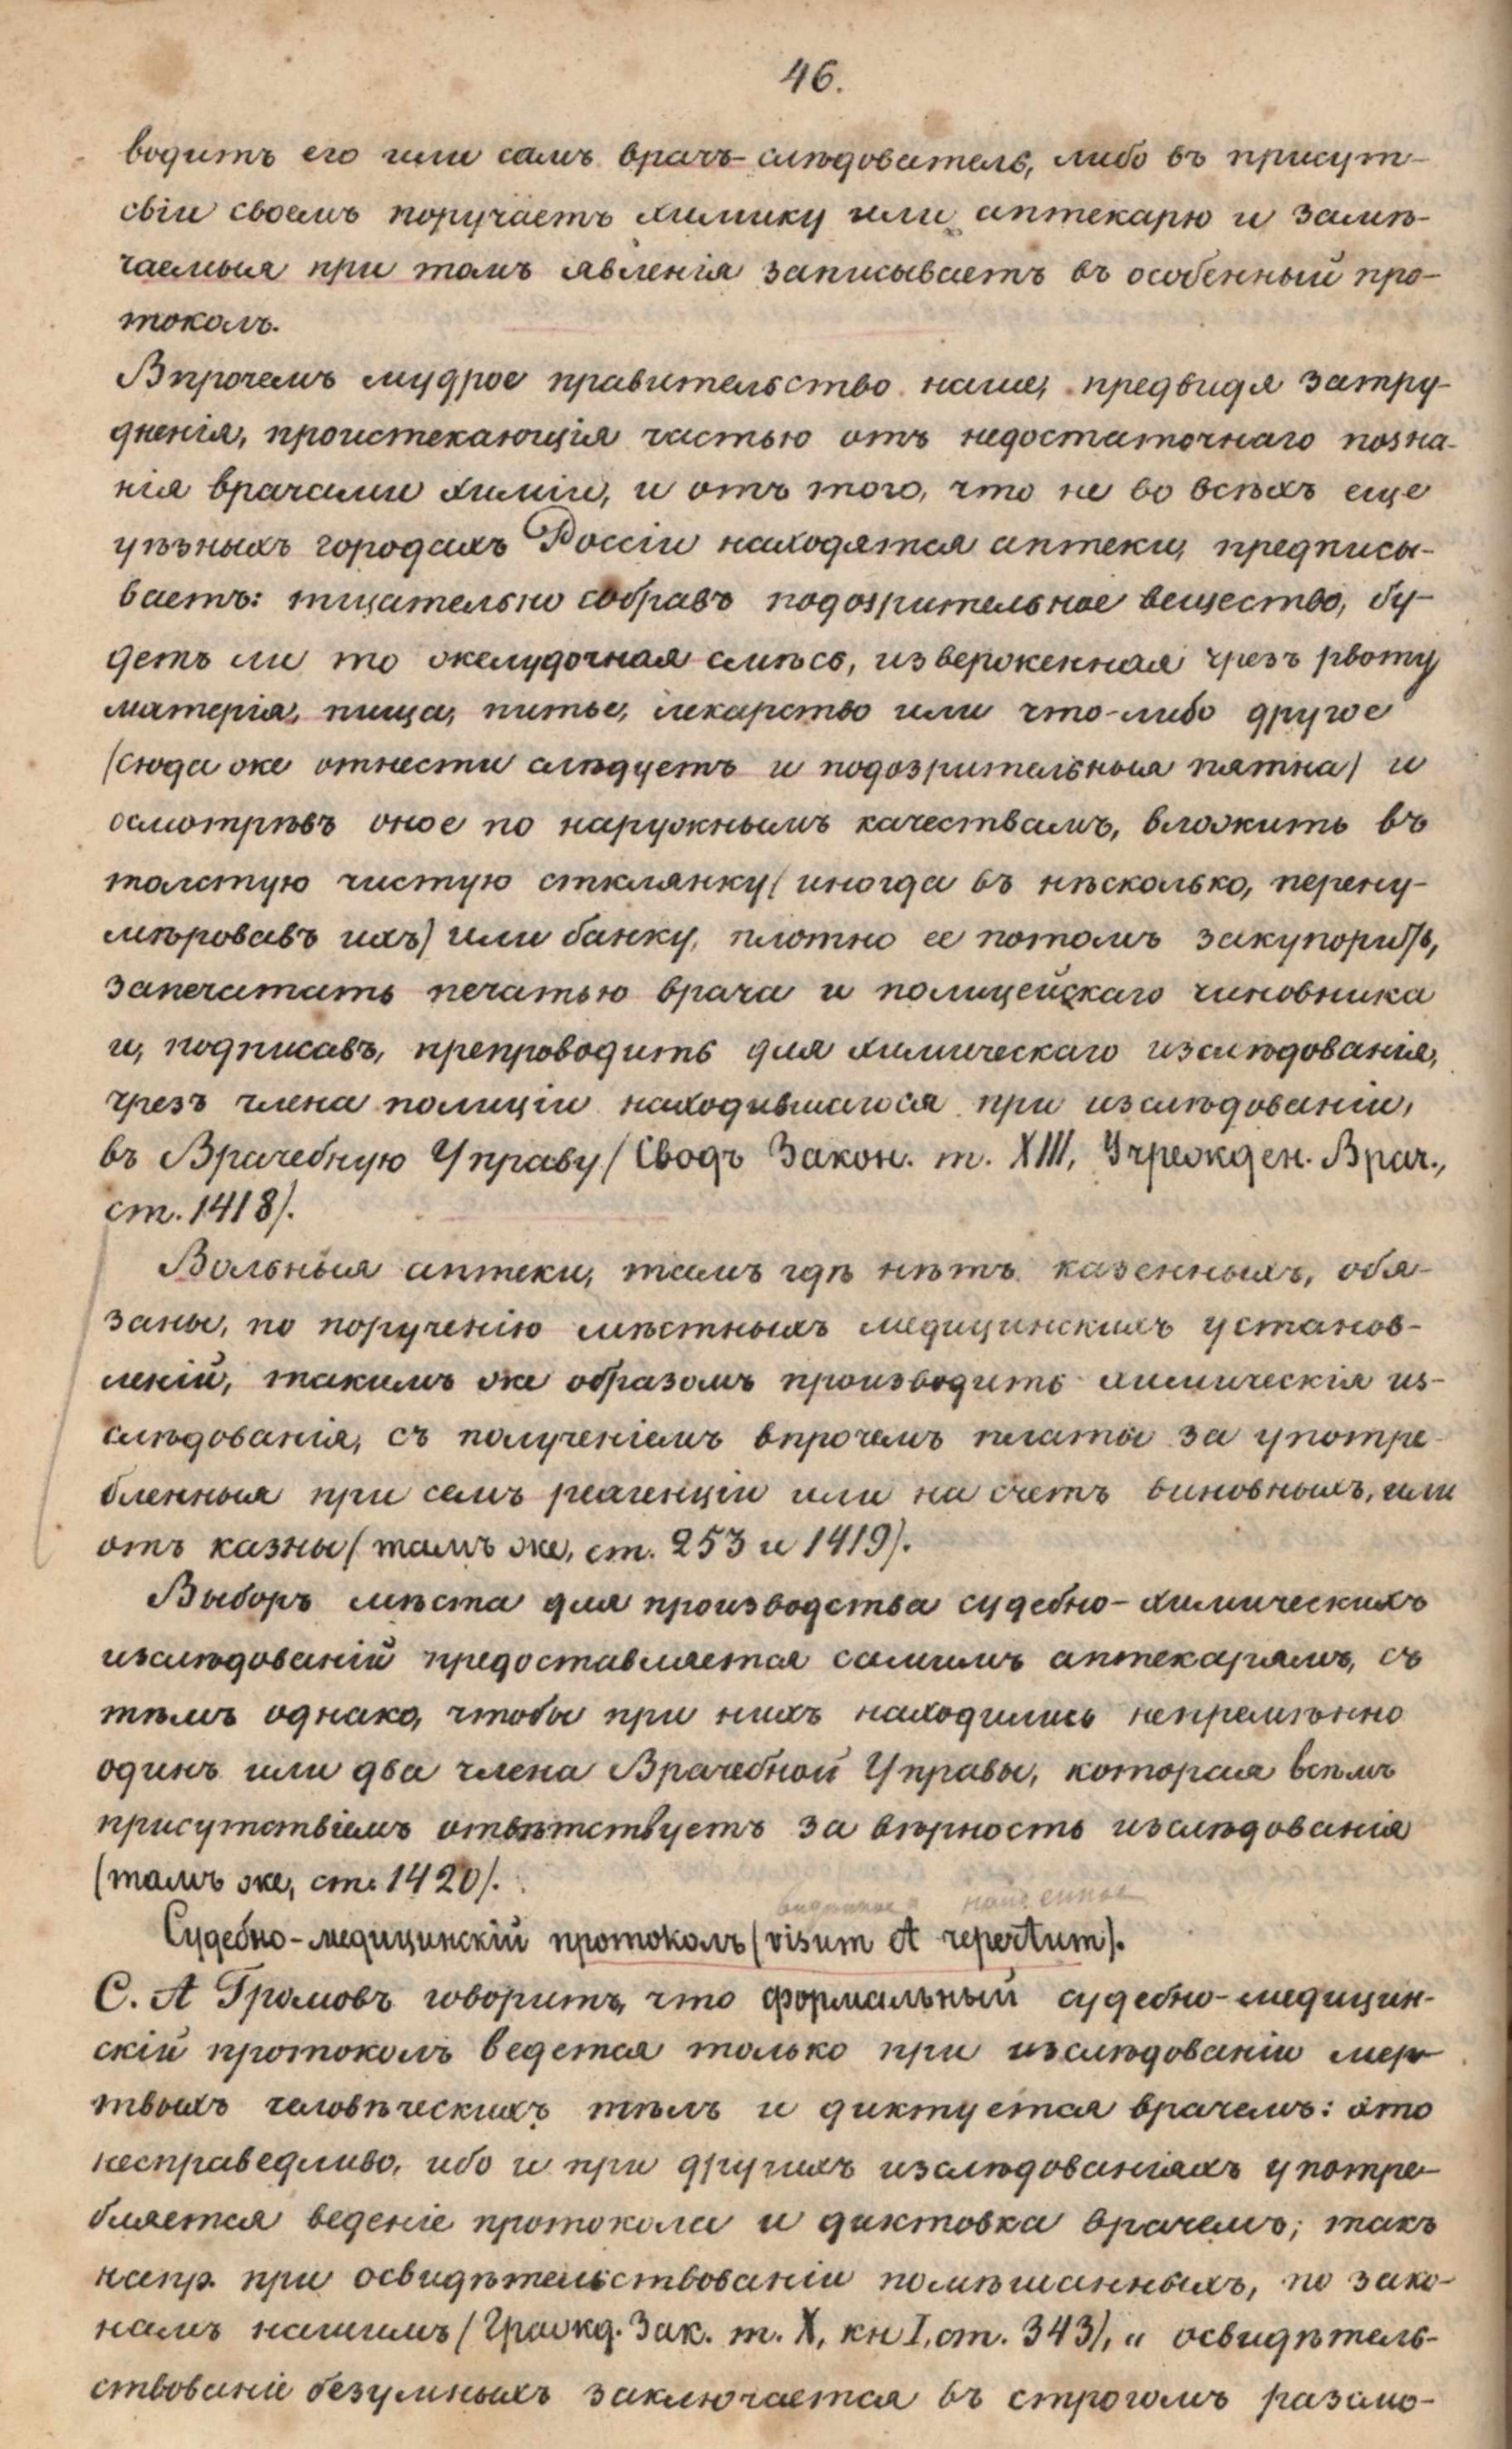 46.
водитъ его или самъ врачъ-слѣдователь, либо въ присут-
свіи своемъ поручаетъ химику или аптекарю и замѣ-
чаемыя при томъ явленія записываетъ въ особенный про-
токолъ.
Впрочемъ мудрое правительство наше, предвидя затру-
дненія, проистекающія частью отъ недостаточнаго позна-
нія врачами химіи, и отъ того, что не во всѣхъ еще
уѣзныхъ городахъ Россіи находятся аптеки, предписы-
ваетъ: тщательно собравъ подозрительное вещество, бу-
детъ ли то желудочная смѣсь, изверженная чрезъ рвоту
матерія, пища, питье, лекарство или что-либо другое
(сюда же отнести слѣдуетъ и подозрительныя пятна) и
осмотрѣвъ оное по наружнымъ качествамъ, вложить въ
толстую чистую стклянку (иногда въ нѣсколько, перену-
мѣровавъ ихъ) или банку, плотно ее потомъ закупорить,
запечатать печатью врача и полицейскаго чиновника
и, подписавъ, препроводить для химическаго изслѣдованія,
чрезъ члена полиціи находившагося при изслѣдованіи,
въ Врачебную Управу (Сводъ Закон. т. XIII, Учрежден. Врач.,
ст. 1418).
Вольныя аптеки, тамъ гдѣ нѣтъ казенныхъ, обя-
заны, по порученію мѣстныхъ медицинскихъ установ-
леній, такимъ же образомъ производить химическія из-
слѣдованія, съ полученіемъ впрочемъ платы за употре-
бленныя при семъ реагенціи или на счетъ виновныхъ, или
отъ казны (тамъ же, ст. 253 и 1419).
Выборъ мѣста для производства судебно-химическихъ
изслѣдованій предоставляется самимъ аптекарямъ, съ
тѣмъ однако, чтобы при нихъ находились непремѣнно
одинъ или два члена Врачебной Управы, которая всѣмъ
присутствіемъ отвѣтствуетъ за вѣрность изслѣдованія
(тамъ же, ст. 1420).
видѣнное и найденное
Судебно-медицинскій протоколъ (visum et repertum).
С. А Громовъ говоритъ, что формальный судебно-медицин-
скій протоколъ ведется только при изслѣдованіи мер-
твыхъ человѣческихъ тѣлъ и диктуется врачемъ: это
несправедливо, ибо и при другихъ изслѣдованіяхъ употре-
бляется веденіе протокола и диктовка врачемъ; такъ
напр. при освидѣтельствованіи помѣшанныхъ, по зако-
намъ нашимъ (Гражд. Зак. т. X, кн I, ст. 343), „ освидѣтель-
ствованіе безумныхъ заключается въ строгомъ разсмо-